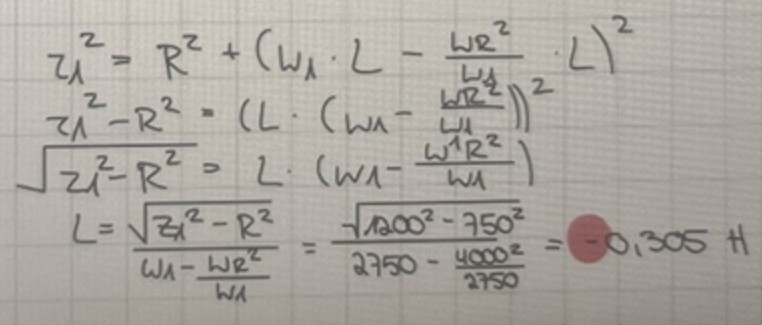 z1² = R² + (ω1 · L − ωR²/ω1 · L)²
z1² − R² = (L · (ω1 − ωR²/ω1))²
√(z1² − R²) = L · (ω1 − ω¹R²/ω1)
L = √(z1² − R²)/(ω1 − ωR²/ω1) = √(1200² − 750²)/(2750 − 4000²/2750) = −0,305 H